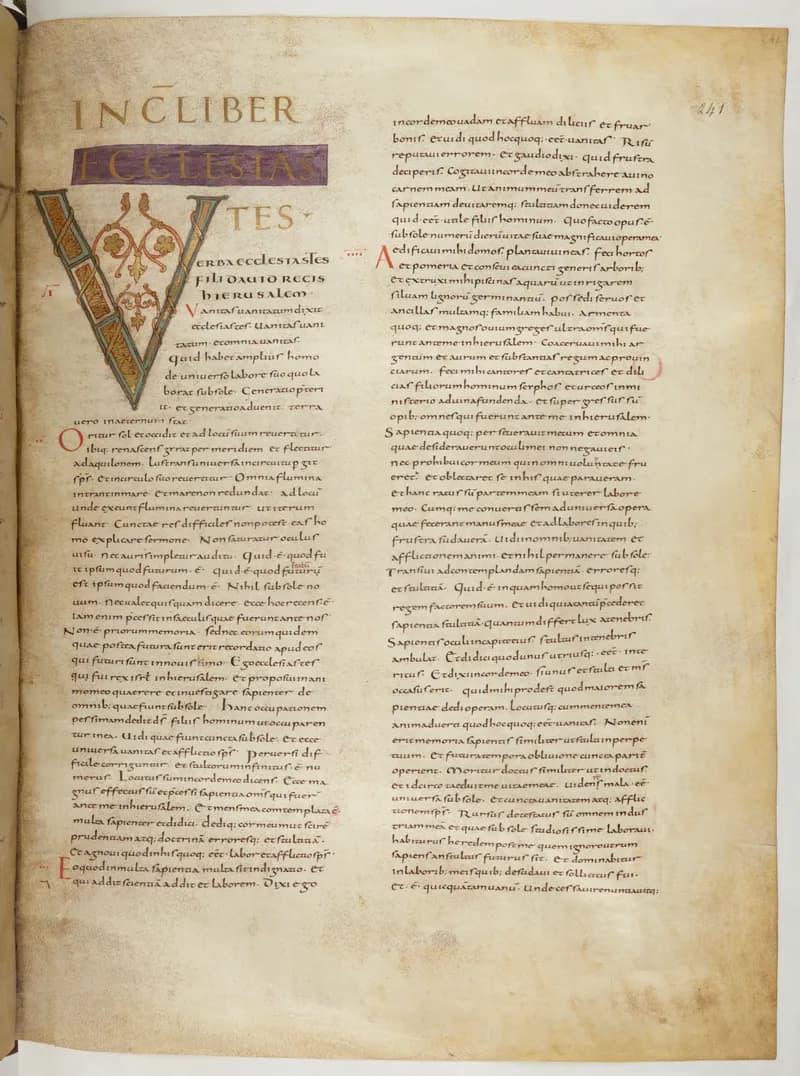 INC̄ LIBER
ECCLESIAS
TES
241
VERBA ECCLESIASTES
FILII DAVID REGIS
HIERUSALEM·
Vanitas uanitatum dixit
ecclesiastes. Uanitas uani
tatum· et omnia uanitas.
Quid habet amplius homo
de uniuerso labore suo quo la
borat sub sole· Generatio p̄teri
it· et generatio aduenit· terra
uero in aeternum stat·
Oritur sol et occidit et ad locū suum reuertitur·
ibiq; renascens gyrat per meridiem et flectitur
ad aquilonem· Lustrans uniuersa in circuitu pgit
sp̄s· et in circulo suo reuertitur· Omnia flumina
intrant in mare· Et mare non redundat· ad locū
unde exeunt flumina reuertuntur ut iterum
fluant· Cunctae res difficiles non potest eas ho
mo explicare sermone· Non saturatur oculus
uisu· nec auris impletur auditu· Quid·ē· quod fu
it ipsum quod futurum·ē· Quid·ē·quod factū
est ipsum quod faciendum·ē· Nihil sub sole no
uum· nec ualet quisquam dicere· ecce hoc recens·ē·
iam enim p̄cessit in saeculis quae fuerunt ante nos·
Non·ē·priorum memoria· sed nec eorum quidem
quae postea futura sunt erit recordatio apud eos
qui futuri sunt in nouissimo· Ego ecclesiastes
qui fui rex isrł in hierusalem· et proposui in ani
mo meo quaerere et inuestigare sapienter de
omnib; quae fiunt sub sole· Hanc occupationem
pessimam dedit d̄s filiis hominum ut occuparen
tur in ea· Uidi quae fiunt cuncta sub sole· Et ecce
uniuersa uanitas et afflictio sp̄s· Peruersi dif
ficile corriguntur· et stultorum infinitus·ē·nu
merus· Locutus sum in corde meo dicens· Ecce ma
gnus effectus sū et p̄cessi sapientia om̄s qui fuer̄
ante me in hierusalem· Et mens mea contemplata·ē·
multa sapienter et didici· dediq; cor meum ut scirē
prudentiam atq; doctrinā erroresq; et stultitiā·
Et agnoui quod in his quoq; eēt· labor et afflictio sp̄s·
Eo quod in multa sapientia multa sit indignatio· et
qui addit scientiā addit et laborem· Dixi ego
in corde meo uadam et affluam diliciis et fruar
bonis· et uidi quod hoc quoq; eēt uanitas· Risū
reputaui errorem· Et gaudio dixi· quid frustra
deciperis· Cogitaui in corde meo abstrahere a uino
carnem meam· Ut animum meū transferrem ad
sapientiam deuitaremq; stultitiam donec uiderem
quid eēt utile filiis hominum· Quo facto opus·ē·
sub sole numerū dierū uitae suae magnificaui opera mea·
Aedificaui mihi domos· plantaui uineas· feci hortos
et pomeria et conseui ea cuncti generis arborib;
et extruxi mihi piscinas aquarū ut inrigarem
siluam lignorū germinantiū· possedi seruos et
ancillas multamq; familiam habui· Armenta
quoq; et magnos ouium greges ultra om̄s qui fue
runt ante me in hierusalem· Coaceruaui mihi ar
gentum et aurum et substantias regum ac prouin
ciarum· feci mihi cantores et cantatrices et dili
cias filiorum hominum scyphos et urceos in mi
nisterio ad uina fundenda· Et supergressus sū
opib; omnes qui fuerunt ante me in hierusalem·
Sapientia quoq; perseuerauit mecum et omnia
quae desiderauerunt oculi mei non negaui eis·
nec prohibui cor meum quin omni uoluptate fru
eret̄· et oblectaret se in his quae paraueram·
et hanc ratus sū partem meam si uterer labore
meo· Cumq; me conuertissem ad uniuersa opera
quae fecerant manus meae et ad labores in quib;
frustra sudauerā· Uidi in omnib; uanitatem et
afflictionem animi· Et nihil permanere sub sole·
Transiui ad contemplandam sapientiā· erroresq;
et stultitiā· Quid·ē·inquam homo ut sequi possit
regem factorem suum· Et uidi quia tantū p̄cederet
sapientia stultitiā· quantum differt lux a tenebris
Sapientis oculi in capite eius· stultus in tenebris
ambulat· Et didici quod unus utriusq; eēt· inte
ritus· Et dixi in corde meo· si unus et stulti et m̄s
occasus erit· quid mihi prodest quod maiorem sa
pientiae dedi operam· Locutusq; cum mente mea
animaduerti quod hoc quoq; eēt uanitas· Non eni
erit memoria sapientis similiter ut stulti in perpe
tuum· Et futura tempora obliuione cuncta parit̄
operient· Moritur doctus similiter ut indoctus
et idcirco taeduit me uitae meae· uidens mala·eē·
uniuersa sub sole· Et cuncta uanitatem atq; afflic
tionem sp̄s· Rursus detestatus sū omnem indus
triam mea et quae sub sole studiosissime laboraui·
habiturus heredem post me quem ignoro utrum
sapiens an stultus futurus sit· et dominabitur
in laborib; meis quib; desudaui et sollicitus fui·
et·ē·quicquā tam uanū· Unde cessaui renuntiauitq;